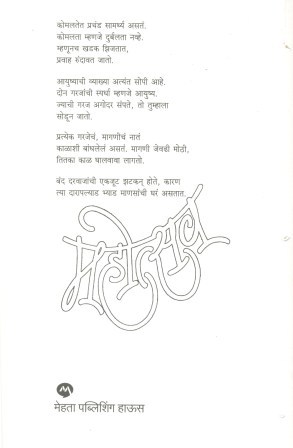 कोमलतेत प्रचंड सामर्थ्य असतं.
कोमलता म्हणजे दुर्बलता नव्हे.
म्हणूनच खडक झिजतात,
प्रवाह रुंदावत जातो.
आयुष्याची व्याख्या अत्यंत सोपी आहे.
दोन गरजांची स्पर्धा म्हणजे आयुष्य.
ज्याची गरज अगोदर संपते, तो तुम्हाला
सोडून जातो.
प्रत्येक गरजेचं, मागणीचं नातं
काळाशी बांधलेलं असतं. मागणी जेवढी मोठी,
तितका काळ घालवावा लागतो.
बंद दरवाजांची एकजूट झटकन् होते, कारण
त्या दारापल्याड भ्याड माणसांची घरं असतात.
महोत्सव
मेहता पब्लिशिंग हाऊस